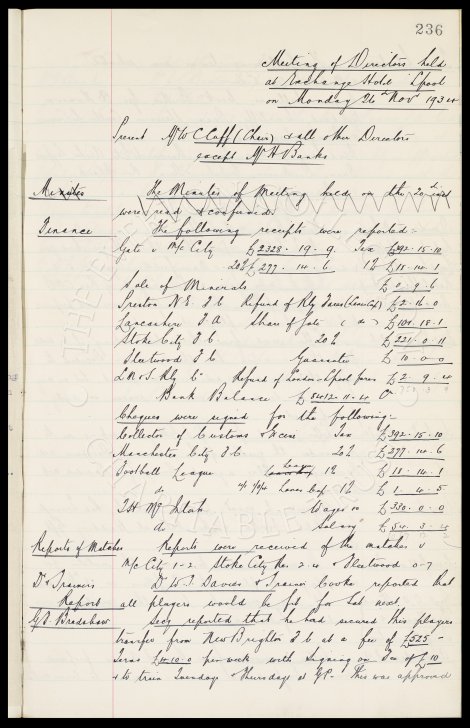 236
Meeting of Directors held
at Exchange Hotel L'pool
on Monday 26th Nov 1934
Present Mr W C Cuff (Chair) & all other Directors
except Mr H Banks
Minutes The Minutes of Meeting held on the 20th inst
were read & confirmed.
Finance The following receipts were reported:-
Gate v M/c City £2328. 19. 9 Tax £392-15-10
20% £277. 14. 6 1% £11-14-1
Sale of Minerals £0. 9. 6
Preston N.E. F.C Refund of Rly Fares (Lancs Cup) £2-16-0
Lancashire F A Share of Gate ( do ) £104.18.1
Stoke City F.C. 20% £221.0.11
Fleetwood F C Guarantee £10-0-0
L M & S Rly Co Refund of London-L'pool fares £2.9.4
Bank Balance £5412-11-4
Cheques were signed for the following:-
Collector of Customs & Excise Tax £392-15-10
Manchester City F.C. 20% £277.14.6
Football League League 1% £11.14.1
do Lancs Cup 1% £1.4.5
T.H. McIntosh Wages £330.0.0
do Salary £54.3.4
Reports of Matches Reports were received of the matches v
M/c City 1-2. Stoke City Res. 2-0 & Fleetwood 0-7
Dr & Trainers Dr W.T. Davies & Trainer Cooke reported that
Report all players would be fit for Sat next.
G.F. Bradshaw Secy reported that he had secured this players
transfer from New Brighton F C at a fee of £525-
Terms £4-10-0 per week with signing on Fee of £10
& to train Tuesdays & Thursdays at G.P. This was approved